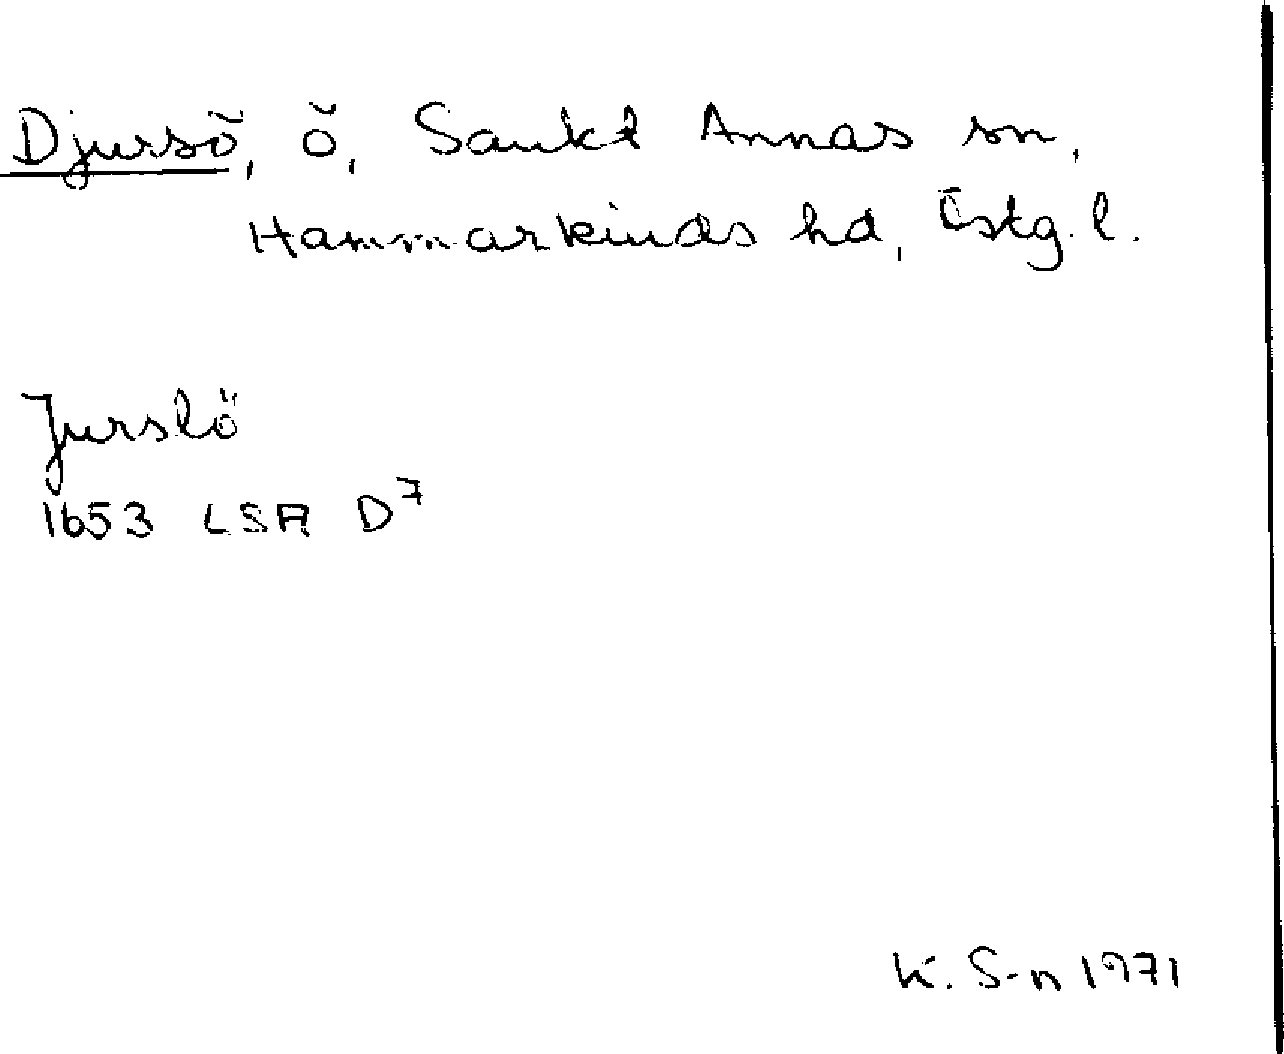 Djursö, ö, Sankt Annas sn,
Hammarkinds hd, Östg. l.
Jurslö
1653 LSA D7
K. S-n 1971